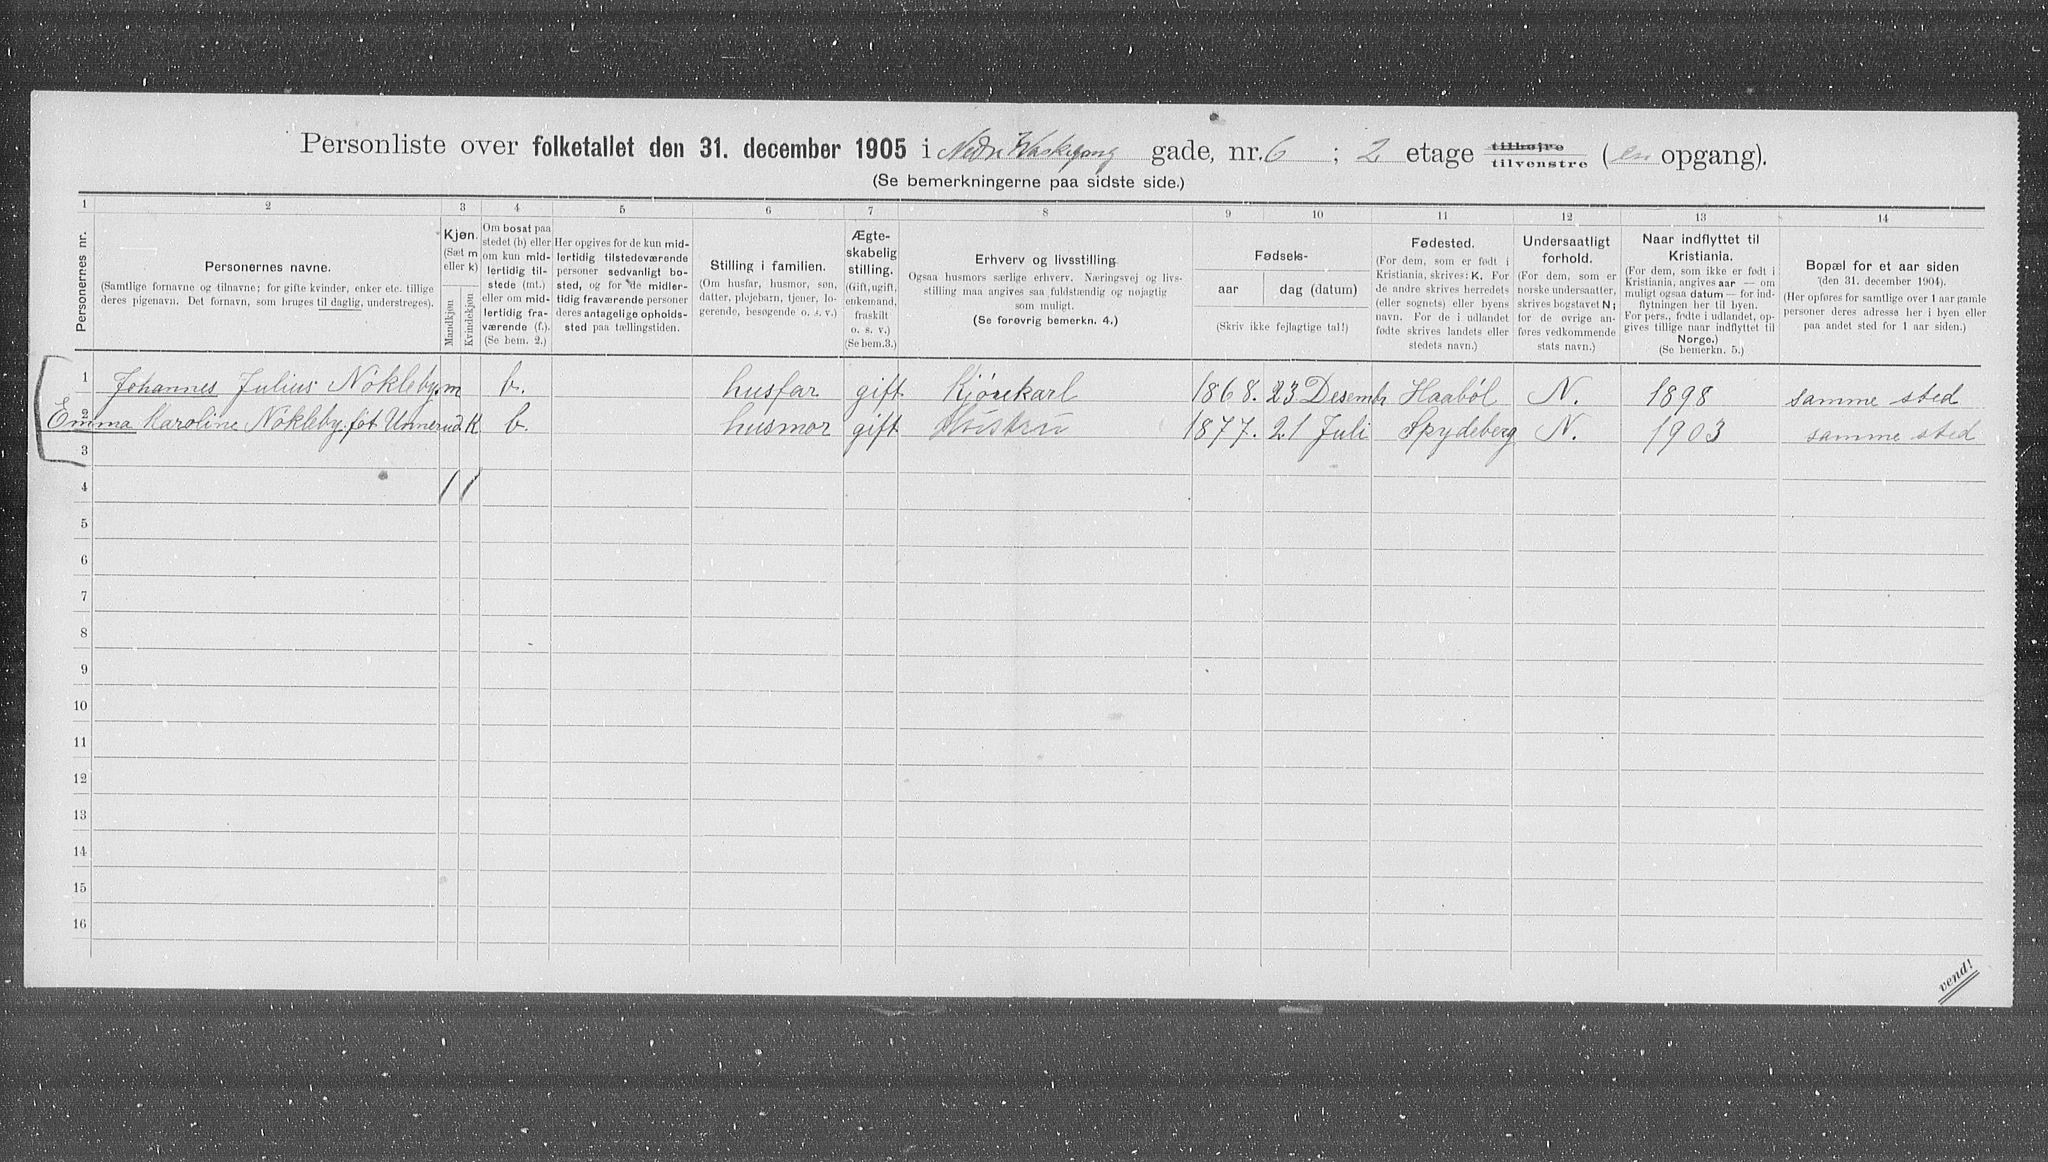 Personliste over folketallet den 31. december 1905 i Nedre Vaskegang gade, nr. 6 ; 2 etage tilhøjre tilvenstre (en opgang).
(Se bemerkningerne paa sidste side.)
1 2 3 4 5 6 7 8 9 10 11 12 13 14
Personernes nr.
Personernes navne.
(Samtlige fornavne og tilnavne; for gifte kvinder, enker etc. tillige
deres pigenavn. Det fornavn, som bruges til daglig, understreges).
Kjøn.
(Sæt m
eller k)
Mandkjøn
Kvindekjøn
Om bosat paa
stedet (b) eller
om kun mid-
lertidig til-
stede (mt.)
eller om mid-
lertidig fra-
værende (f.).
(Se bem. 2.)
Her opgives for de kun mid-
lertidig tilstedeværende
personer sedvanligt bo-
sted, og for de midler-
tidig fraværende personer
deres antagelige opholds-
sted paa tællingstiden.
Stilling i familien.
(Om husfar, husmor, søn,
datter, plejebarn, tjener, lo-
gerende, besøgende o. s. v.)
Ægte-
skabelig
stilling.
(Gift, ugift,
enkemand,
fraskilt
o. s. v.)
(Se bem.3.)
Erhverv og livsstilling.
Ogsaa husmors særlige erhverv. Næringsvej og livs-
stilling maa angives saa fuldstændig og nøjagtig
som muligt.
(Se forøvrig bemerkn. 4.)
Fødsels-
aar dag (datum)
(Skriv ikke fejlagtige tal!)
Fødested.
(For dem, som er født i
Kristiania, skrives: K. For
de andre skrives herredets
(eller sognets) eller byens
navn. For de i udlandet
fødte skrives landets eller
stedets navn.)
Undersaatligt
forhold.
(For dem, som er
norske undersaatter,
skrives bogstavet N;
for de øvrige an-
føres vedkommende
stats navn.)
Naar indflyttet til
Kristiania.
(For dem, som ikke er født i
Kristiania, angives aar — om
muligt ogsaa datum — for ind-
flytningen her til byen.
For pers., fødte i udlandet, op-
gives tillige naar indflyttet til
Norge.)
(Se bemerkn. 5.)
Bopæl for et aar siden
(den 31. december 1904).
(Her opføres for samtlige over 1 aar gamle
personer deres adresse her i byen eller
paa andet sted for 1 aar siden.)
1 Johannes Julius Nökleby. m b. husfar gift Kjørekarl 1868. 23 Desembr Haaböl N. 1898 samme sted
2 Emma Karoline Nökleby. föt Unnerud K b. husmor gift Hustru 1877. 21 Juli Spydeberg N. 1903 samme sted
3
4 1 1
5
6
7
8
9
10
11
12
13
14
15
16
vend!